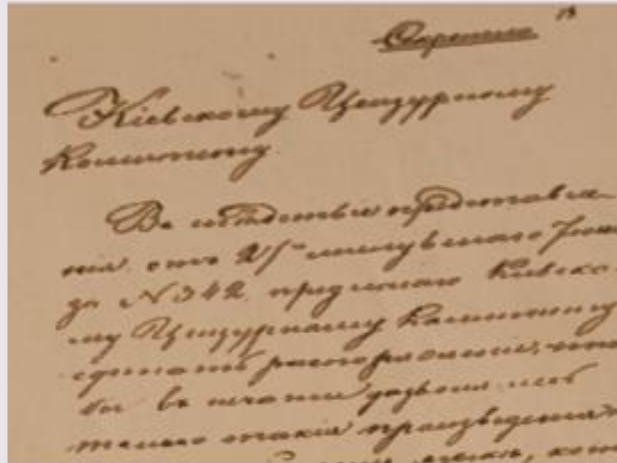 Секретно
Кіевскому Цензурному
Комитету.
Въ слѣдствіе представле-
нія, отъ 27го минувшаго Іюня
за № 342, предлагаю Кіевско-
му Цензурному Комитету
сдѣлать распоряженіе, что
бы въ печати дозволялись
только такія произведенія